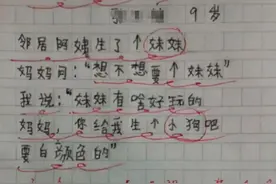 9岁
邻居阿姨生了个妹妹
妈妈问:“想不想要个妹妹”
我说:“妹妹有啥好玩的
妈妈,你给我生个小狗吧
要白颜色的”